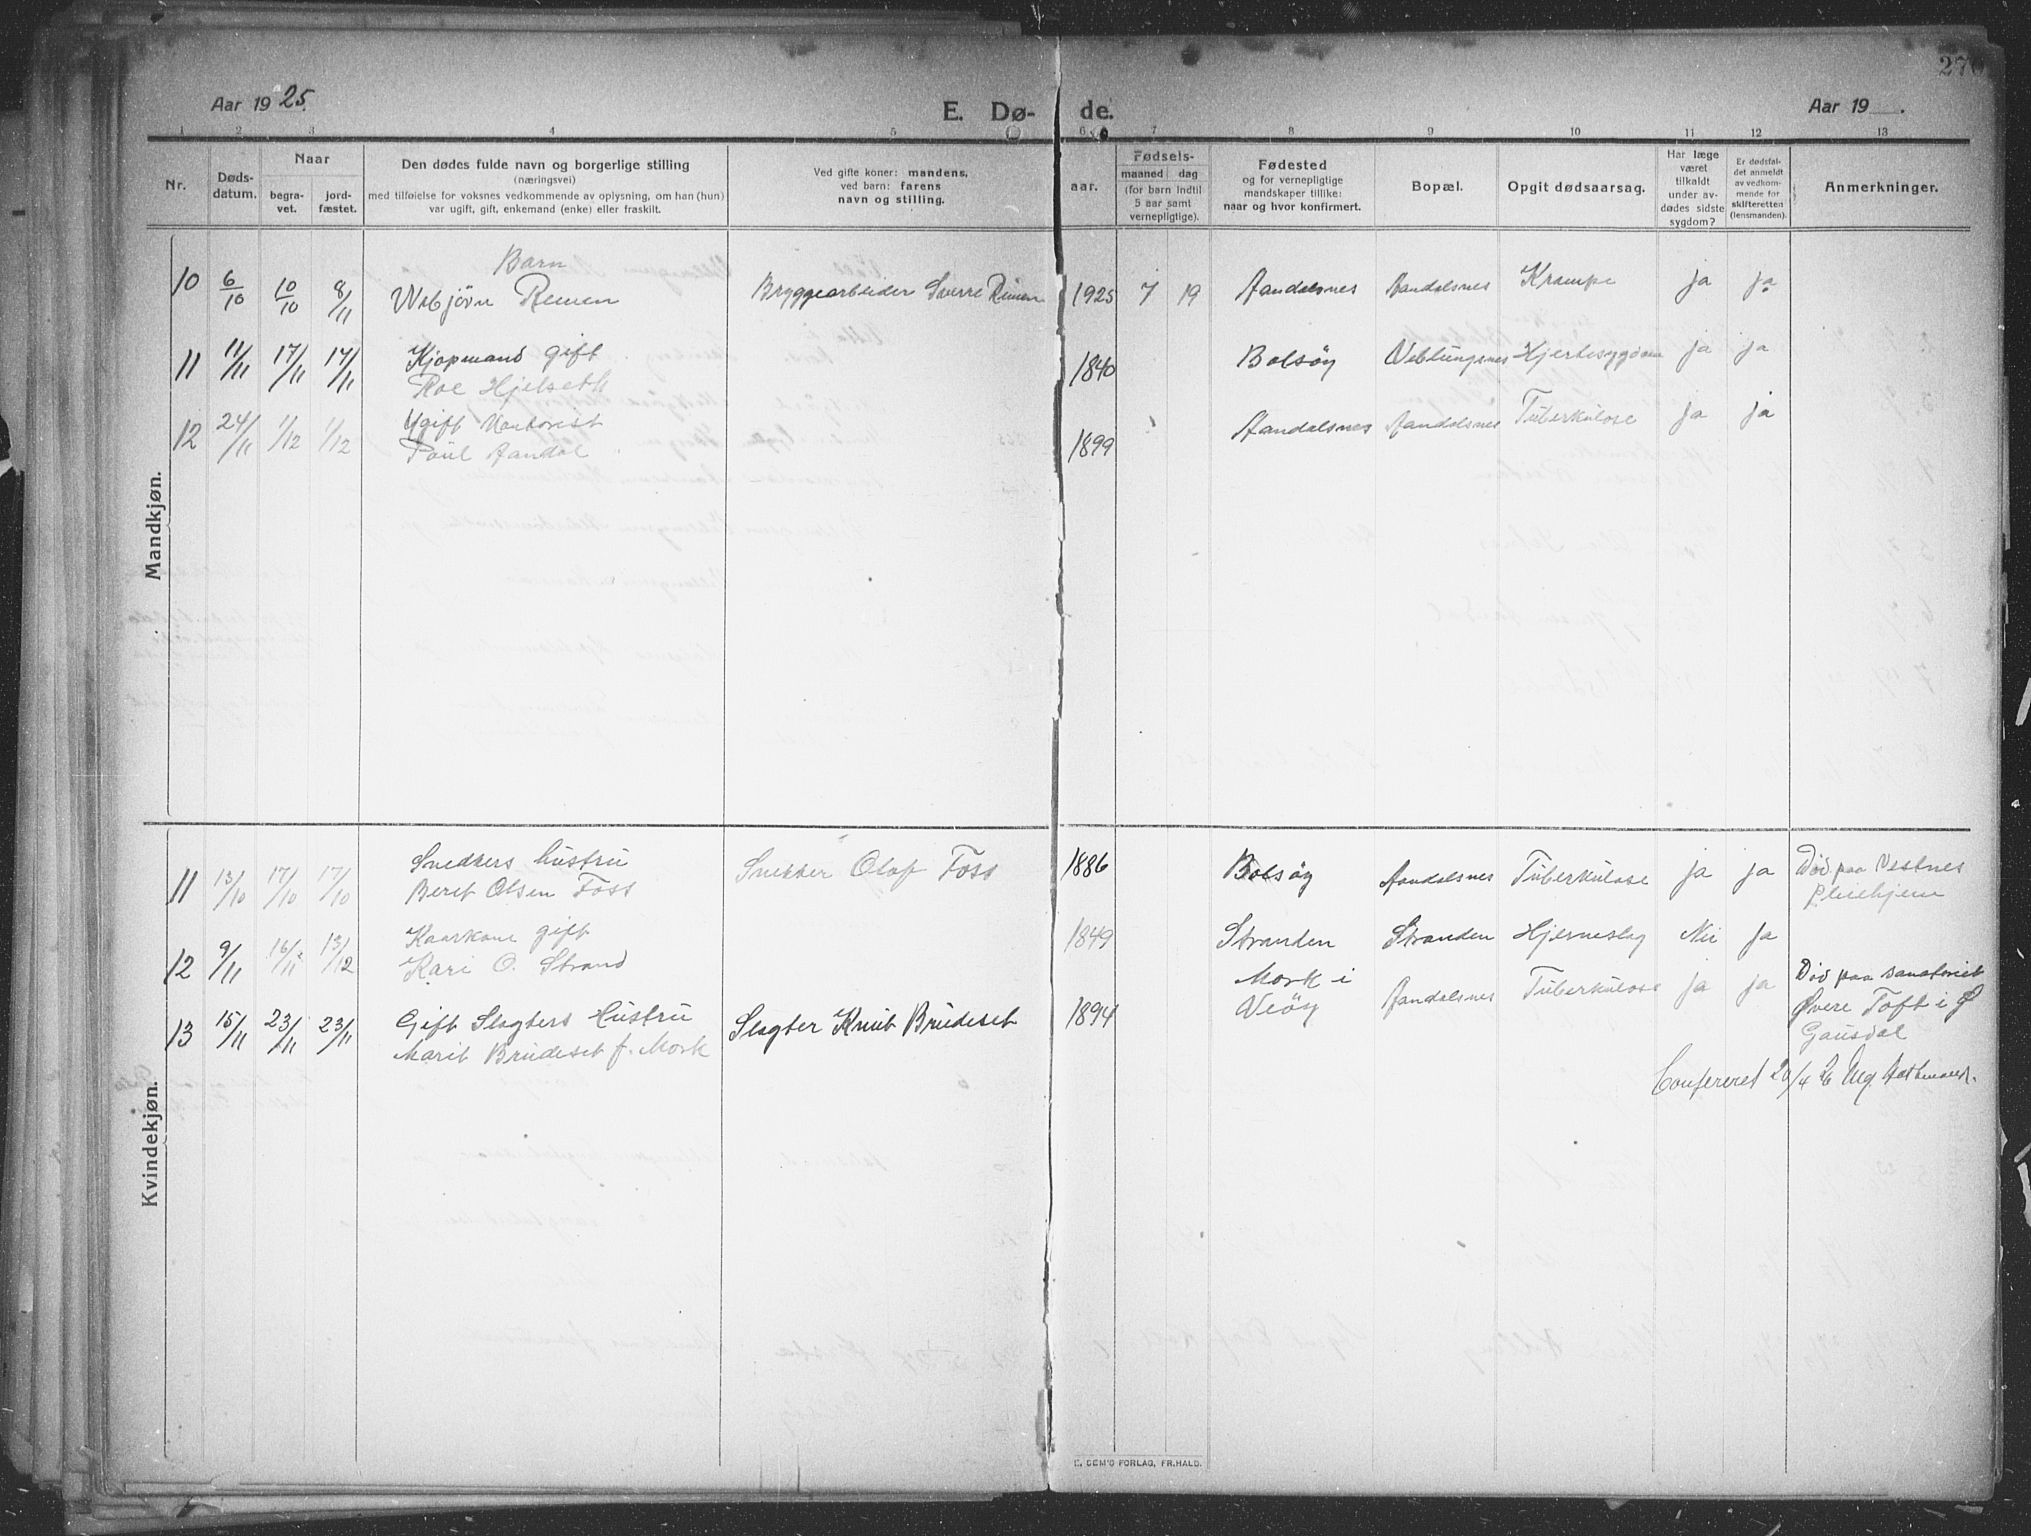 270
Aar 1925.
E. Dø- de.
Aar 19
1 2 3 4 5 6 7 8 9 10 11 12 13
Nr.
Døds-
datum.
Naar
begra-
vet.
jord-
fæstet.
Den dødes fulde navn og borgerlige stilling
(næringsvei)
med tilføielse for voksnes vedkommende av oplysning, om han (hun)
var ugift, gift, enkemand (enke) eller fraskilt.
Ved gifte koner: mandens,
ved barn: farens
navn og stilling.
aar.
Fødsels-
maaned dag
(for barn indtil
5 aar samt
vernepligtige).
Fødested
og for vernepligtige
mandskaper tillike:
naar og hvor konfirmert.
Bopæl.
Opgit dødsaarsag.
Har læge
været
tilkaldt
under av-
dødes sidste
sygdom?
Er dødsfal-
det anmeldt
av vedkom-
mende for
skifteretten
(lensmanden).
Anmerkninger.
Mandkjøn.
Barn
10 6/10 10/10 8/11 Asbjörn Remen Bryggearbeider Sverre Remen 1925 7 19 Aandalsnes Aandalsnes Krampe ja ja
11 11/11 17/11 17/11 Kjøpmand gift
Roe Hjelseth 1840 Bolsöy Veblungsnes Hjertesygdom ja ja
12 24/11 1/12 1/12 Ugift Kontorist
Paul Aandal 1899 Aandalsnes Aandalsnes Tuberkulose ja ja
Kvindekjøn.
11 13/10 17/10 17/10 Snedkers hustru
Beret Olsen Foss Snekker Olaf Foss 1886 Bolsöy Aandalsnes Tuberkulose ja ja Död paa Vestnes
Pleiehjem
12 9/11 16/11 13/12 Kaarkone gift
Kari O. Strand 1849 Stranden Stranden Hjerneslag Nei ja
13 15/11 23/11 23/11 Gift Slagters Hustru
Marit Brudeset f. Mork Slagter Knut Brudeset 1894 Mork i
Veöy Aandalsnes Tuberkulose ja ja Död paa sanatoriet
Øvere Toft i Ø
Gausdal
Confereret 20/4 26
E. SEM'S FORLAG, FR.HALD.